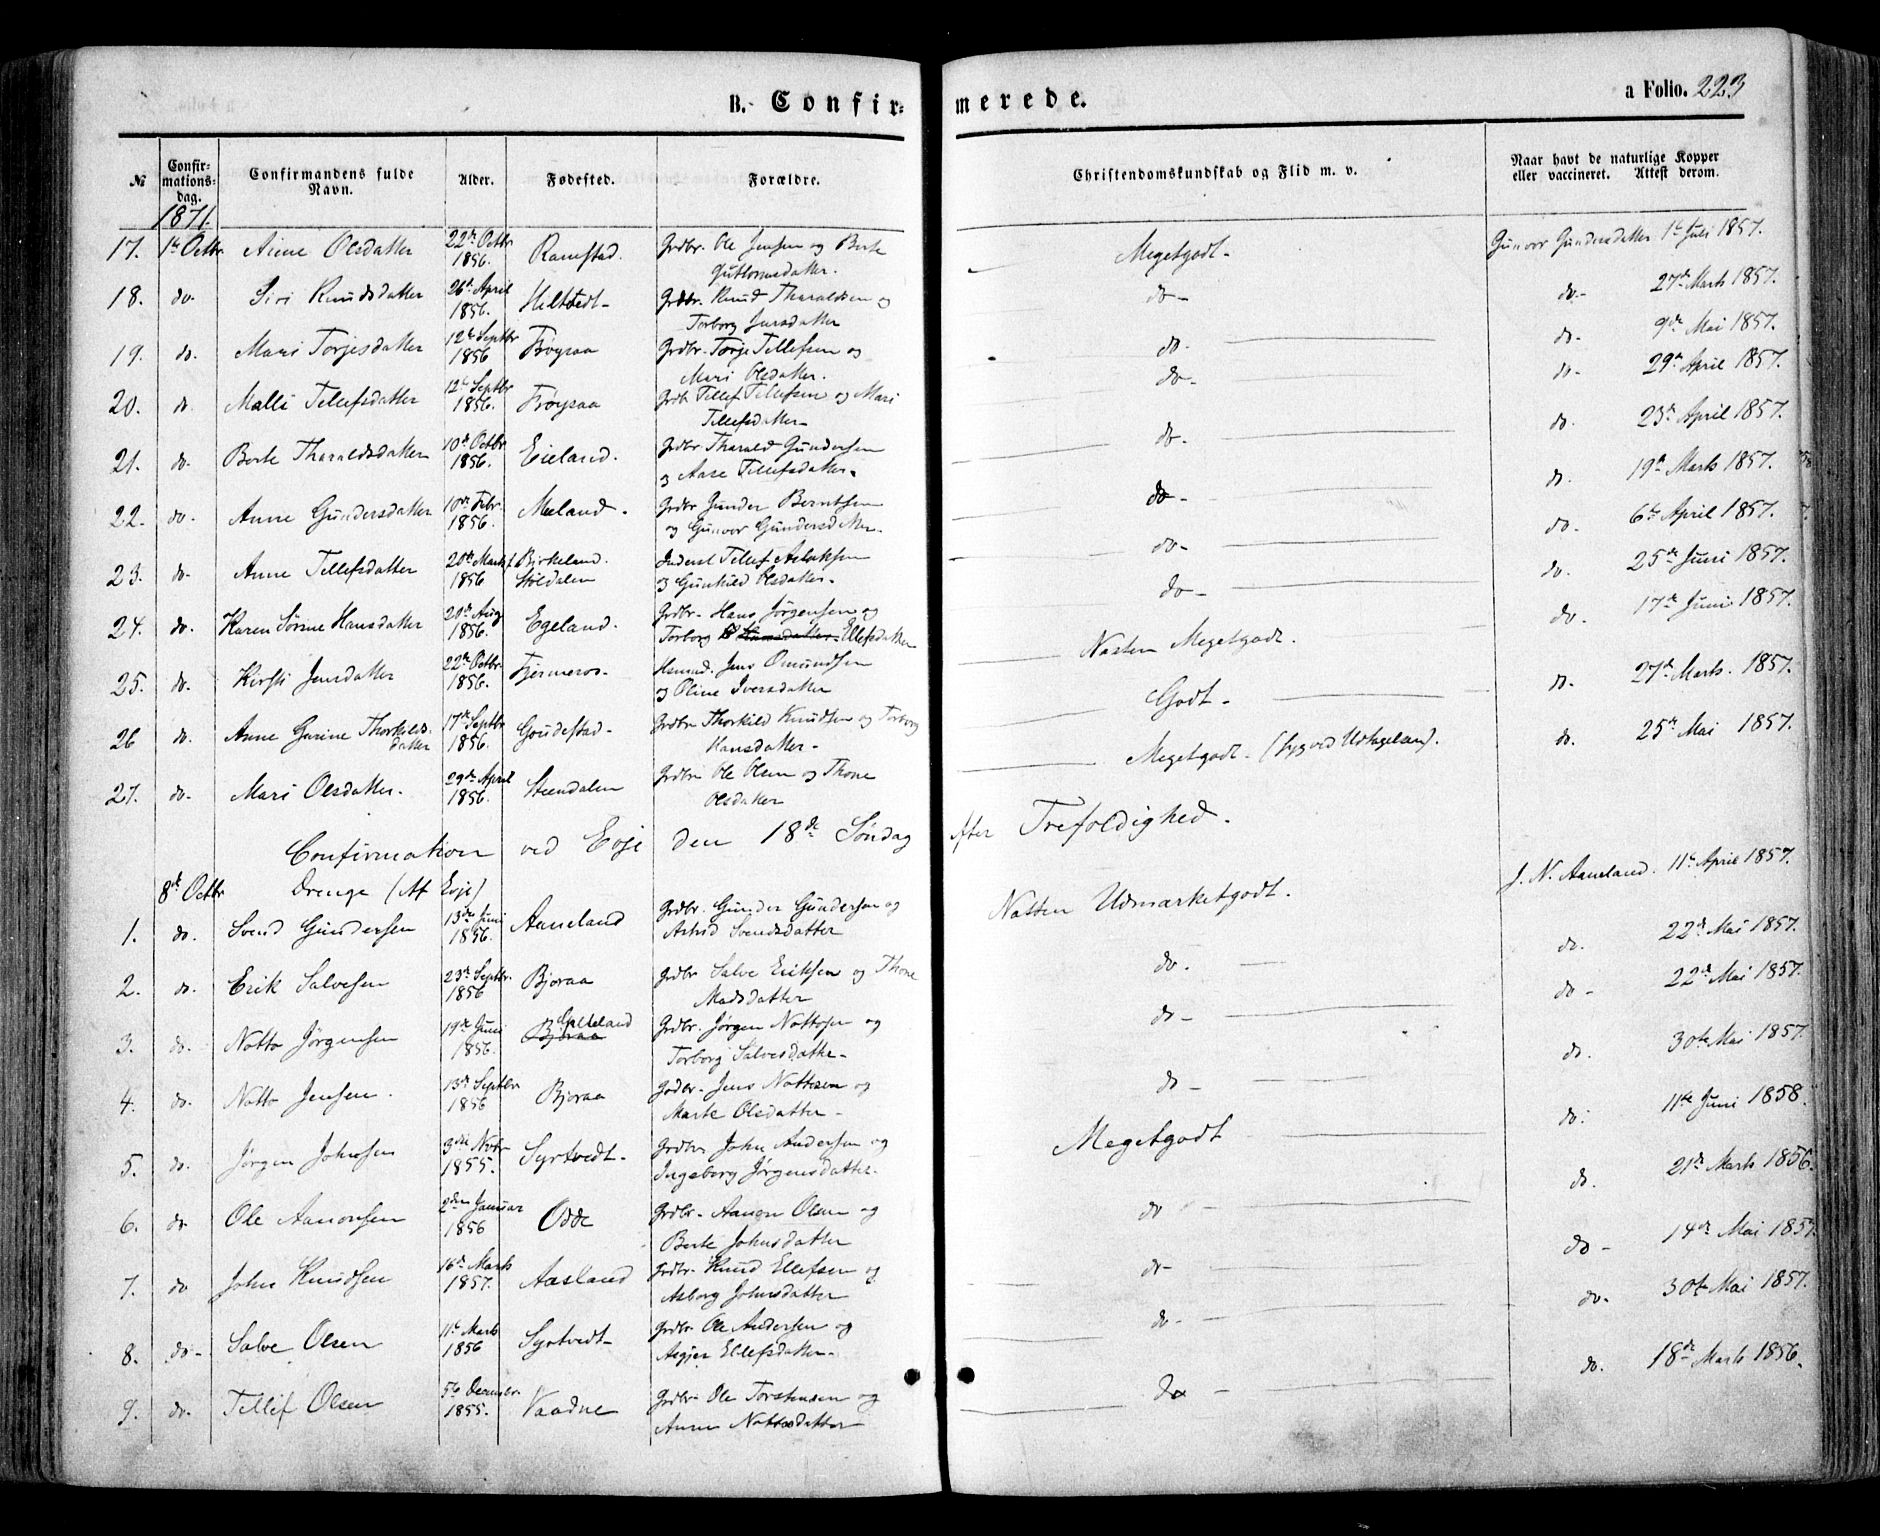 B. Confir-
merede.
a Folio. 223
№
Confir-
mations-
dag.
Confirmandens fulde
Navn.
Alder.
Fødested.
Forældre.
Christendomskundskab og Flid m. v.
Naar havt de naturlige Kopper
eller vaccineret. Attest derom.
1871.
17. 1ste Octbr. Anne Olsdatter 22de Octbr 1856. Ramstad. Grdbr. Ole Jensen og Berte
Guttormsdatter. Megetgodt. Gunvor Gundersdatter 1ste Juli 1857.
18. do. Siri Knudsdatter 26de April 1856. Hiltvedt. Grdbr. Knud Tharaldsen og
Torborg Jensdatter do. do. 27de Marts 1857.
19. do. Mari Torjesdatter 12te Septbr 1856 Frøysaa Grdbr. Torje Tellefsen og
Mari Olsdatter. do. do. 9de Mai 1857.
20. do. Malli Tellefsdatter 12te Septbr 1856. Frøysaa Grdb. Tellef Tellefsen og Mari
Tellefsdatter. do. do. 29de April 1857.
21. do. Berte Tharaldsdatter 10de Octbr 1856. Eieland. Grdbr Tharald Gundersen
og Aase Tellefsdatter. do. do. 23de April 1857.
22. do. Anne Gundersdatter 10de Febr. 1856. Meland. Grdbr Gunder Berntsen
og Gunvor Gundersdatter. do. do. 19de Marts 1857.
23. do. Anne Tellefsdatter 20de Marts 1856 Birkeland.
Støldalen Inderst Tellef Aslaksen
og Gunhild Olsdatter. do. do. 6te April 1857.
24. do. Karen Sørine Hansdatter 20de Aug 1856. Egeland. Grdbr. Hans Jørgensen og
Torborg Hansdatter. Ellefsdatter do. do. 25de Juni 1857.
25. do. Kirsti Jensdatter 22de Octbr 1856. Fjermeros. Husmd. Jens Omundsen
og Oline Iversdatter Næsten Megetgodt. do. 17de Juni 1857.
26 do. Anne Gurine Thorkilds-
datter 17de Septbr 1856. Goudestad. Grdbr Thorkild Knudsen og Torborg
Hansdatter. Godt. do. 27de Marts. 1857.
27. do. Mari Olsdatter. 29de April 1856. Steendalen Grdbr Ole Olsen og Thone
Olsdatter Megetgodt. (syg ved Udtagelsen). do. 25de Mai 1857.
Confirmation ved Evje den 18de Søndag after Trefoldighed.
8de Octbr Drenge (Af Evje)
1. do. Svend Gundersen 13de Juni 1856. Aaneland Grdbr. Gunder Gundersen og
Astrid Svendsdatter Næsten Udmærketgodt. J. N. Aaneland. 11te April 1857.
2. do. Erik Salvesen 23de Septbr. 1856 Bjoraa Grdbr Salve Eriksen og Thone
Madsdatter do. do. 22de Mai 1857.
3. do. Notto Jørgensen 19de Juni 1856. Bjoraa Grdbr. Jørgen Nottosen og
Torborg Salvesdatter. do. do. 22de Mai 1857.
4. do. Notto Jensen. 13de Septbr 1856 Bjoraa Grdbr. Jens Nottosen og
Marte Olsdatter. do. do. 30te Mai 1857.
5. do. Jørgen Johnsen 3die Novbr 1855. Syrtvedt. Grdbr John Andersen og
Ingeborg Jørgensdatter. Megetgodt do. 11te Juni 1858.
6. do. Ole Aanonsen 2den Januar 1856 Odde Grdbr. Aanon Olsen og
Berte Johnsdatter do do. 21de Marts 1856.
7. do John Knudsen 16de Marts 1857. Aasland Grdbr. Knud Ellefsen og
Asborg Johnsdatter do do. 14de Mai 1857.
8. do. Salve Olsen 11te Marts 1856 Syrtvedt. Grdbr Ole Andersen og
Asgjer Ellefsdatter. do. do. 30te Mai 1857.
9. do. Tellef Olsen 5te December. 1855. Vaadne Grdbr. Ole Torstensen og
Anne Nottosdatter do do. 18de Marts 1856.